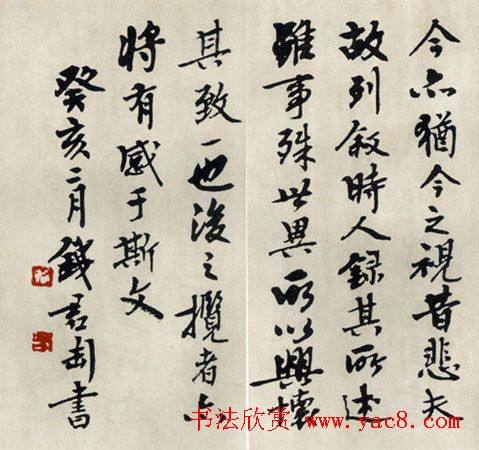 今亦猶今之視昔悲夫
故列敘時人錄其所述
雖事殊世異所以興懷
其致一也後之攬者亦
將有感于斯文
癸亥二月錢君匋書
书法欣赏 www.yac8.com